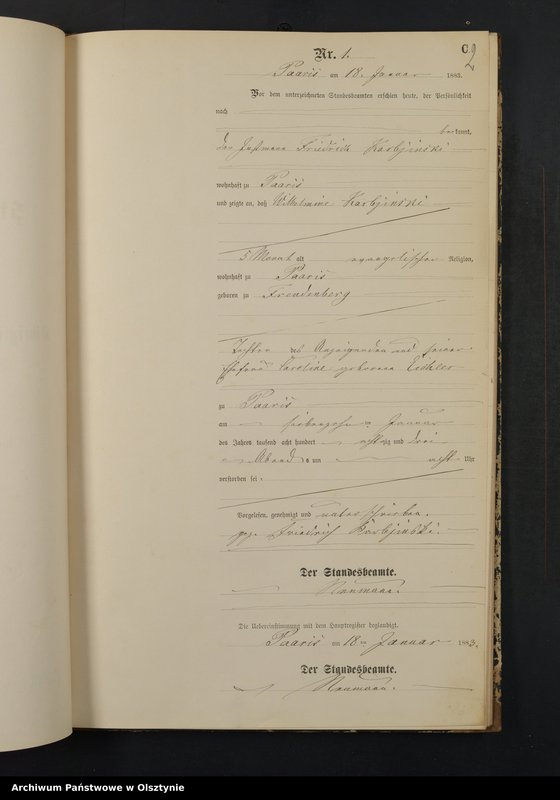 Nr. 1.
C
2
Paaris am 18. Januar 1883.
Vor dem unterzeichneten Standesbeamten erschien heute, der Persönlichkeit
nach
bekannt,
der Friedrich Karbjinski
wohnhaft zu Paaris
und zeigte an, daß Wilhelmine Karbjinski
5 Monat alt evangelischer Religion,
wohnhaft zu Paaris
geboren zu Freudenberg
Tochter des Anzeigenden und seiner
Ehefrau Caroline geborene
zu Paaris
am siebenzehn Januar
des Jahres tausend acht hundert achtzig und drei
Abends um acht Uhr
verstorben sei.
Vorgelesen, genehmigt und unterschrieben.
gez. Friedrich Karbjinski.
Der Standesbeamte.
Naumann.
Die Uebereinstimmung mit dem Hauptregister beglaubigt.
Paaris am 18 ten Januar 1883.
Der Standesbeamte.
Naumann.
Archiwum Państwowe w Olsztynie